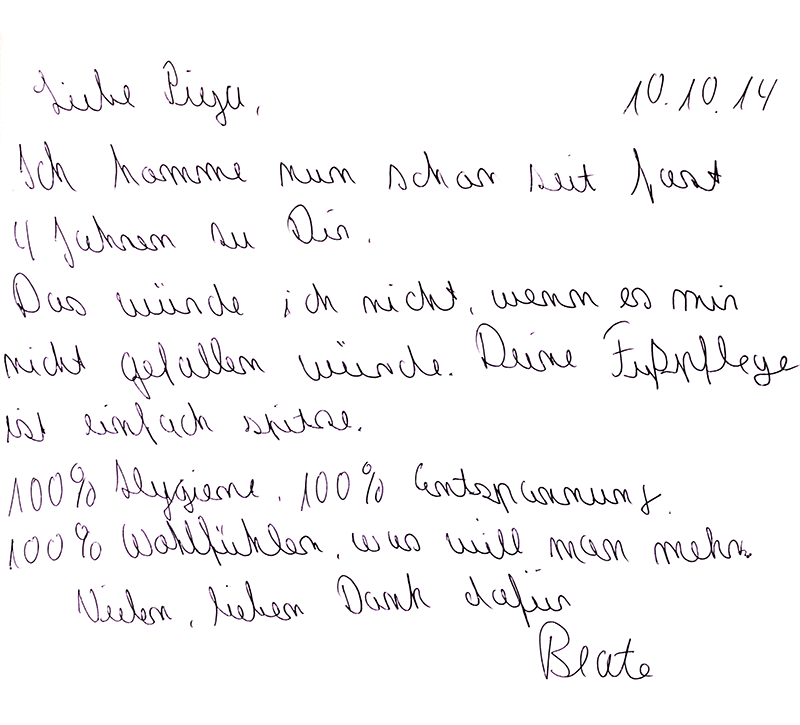 Liebe Piya,
10.10.14
Ich komme nun schon seit fast
4 Jahren zu Dir.
Das würde ich nicht, wenn es mir
nicht gefallen würde. Deine Fußpflege
ist einfach spitze.
100% Hygiene, 100% Entspannung,
100% Wohlfühlen, was will man mehr.
Vielen, lieben Dank dafür
Beate